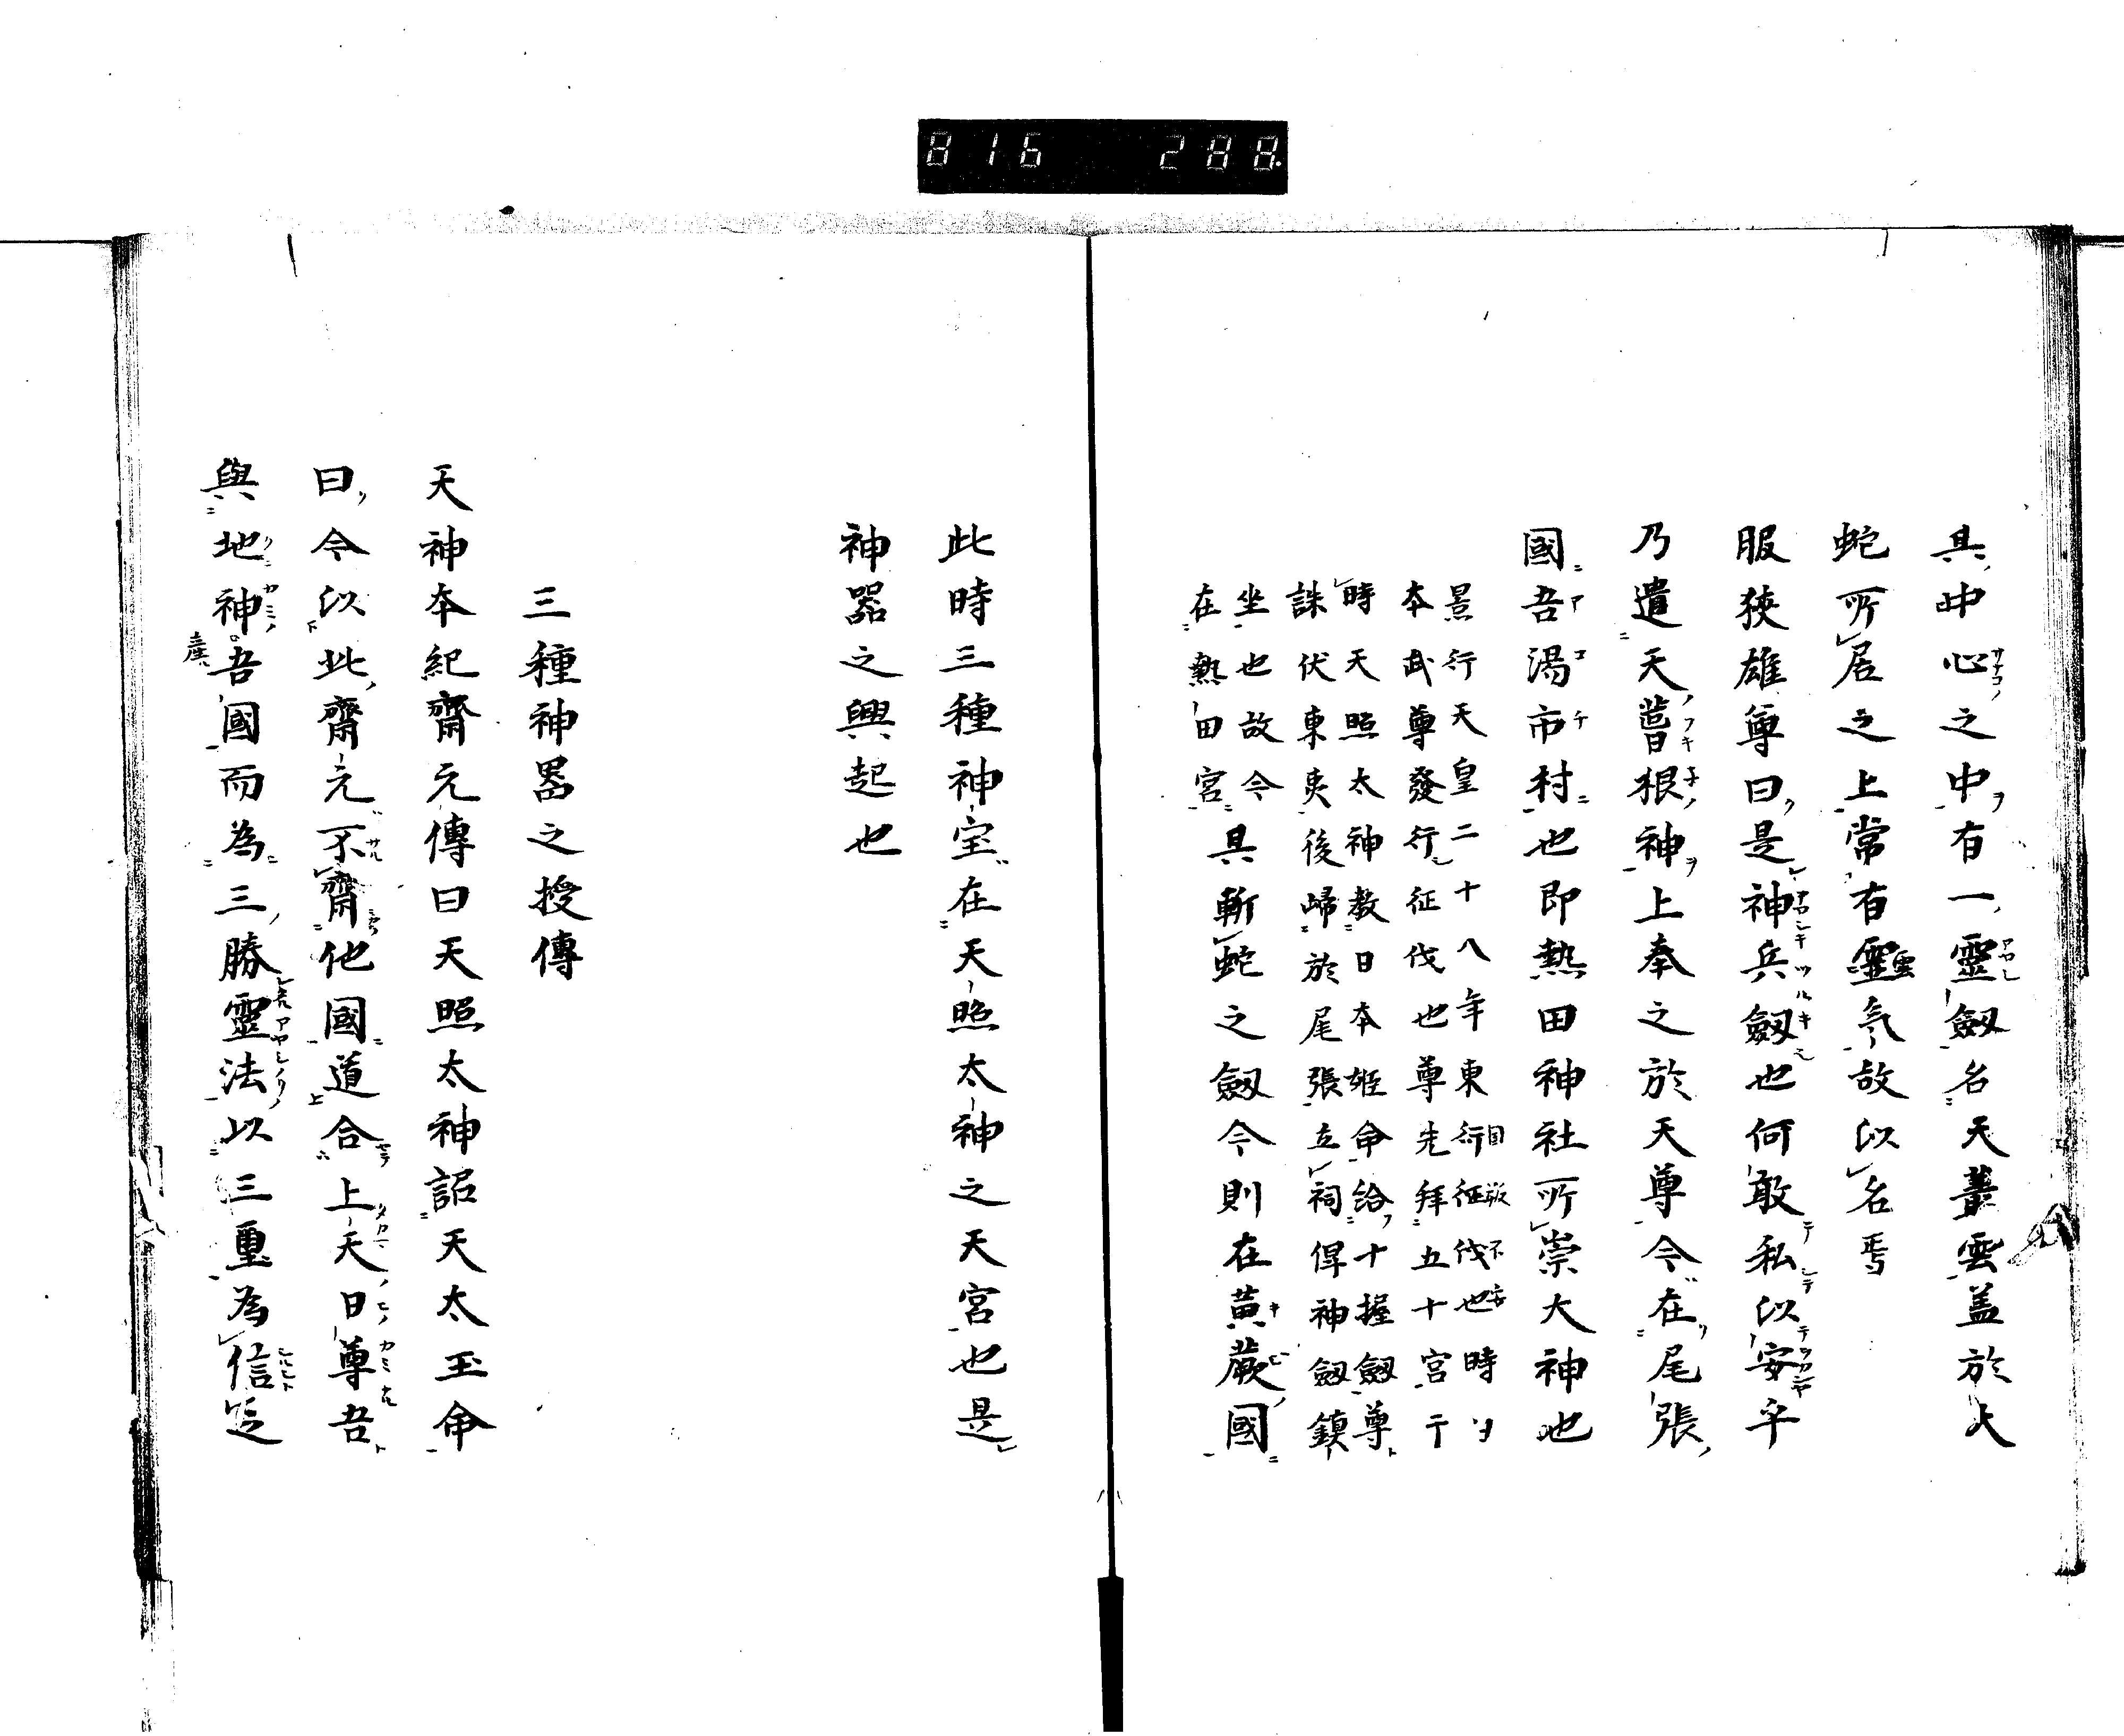 816 288
其中心之中有一靈劔名天叢雲盖於大
蛇所居之上常有靈氣故以名焉
服狹雄尊曰是神兵劔也何敢私以安乎
乃遣天葺根神上奉之於天尊今在尾張
國吾湯市村也即熱田神社所崇大神也
景行天皇二十八年東行征伐也時ヲ
本武尊發行征伐也尊先拜五十宮于
時天照太神教日本姫命給十握劔尊
誅伏東夷後歸於尾張立祠俾神劔鎮
坐也故今
在熱田宮
具斬蛇之劔今則在黄蕨國
此時三種神宝在天照太神之天宮也是
神器之興起也
三種神噐之授傳
天神本紀齋元傳曰天照太神詔天太玉命
曰今以此齋元不齋他國道合上天日尊吾
與地神吾國而為三勝靈法以三重為信